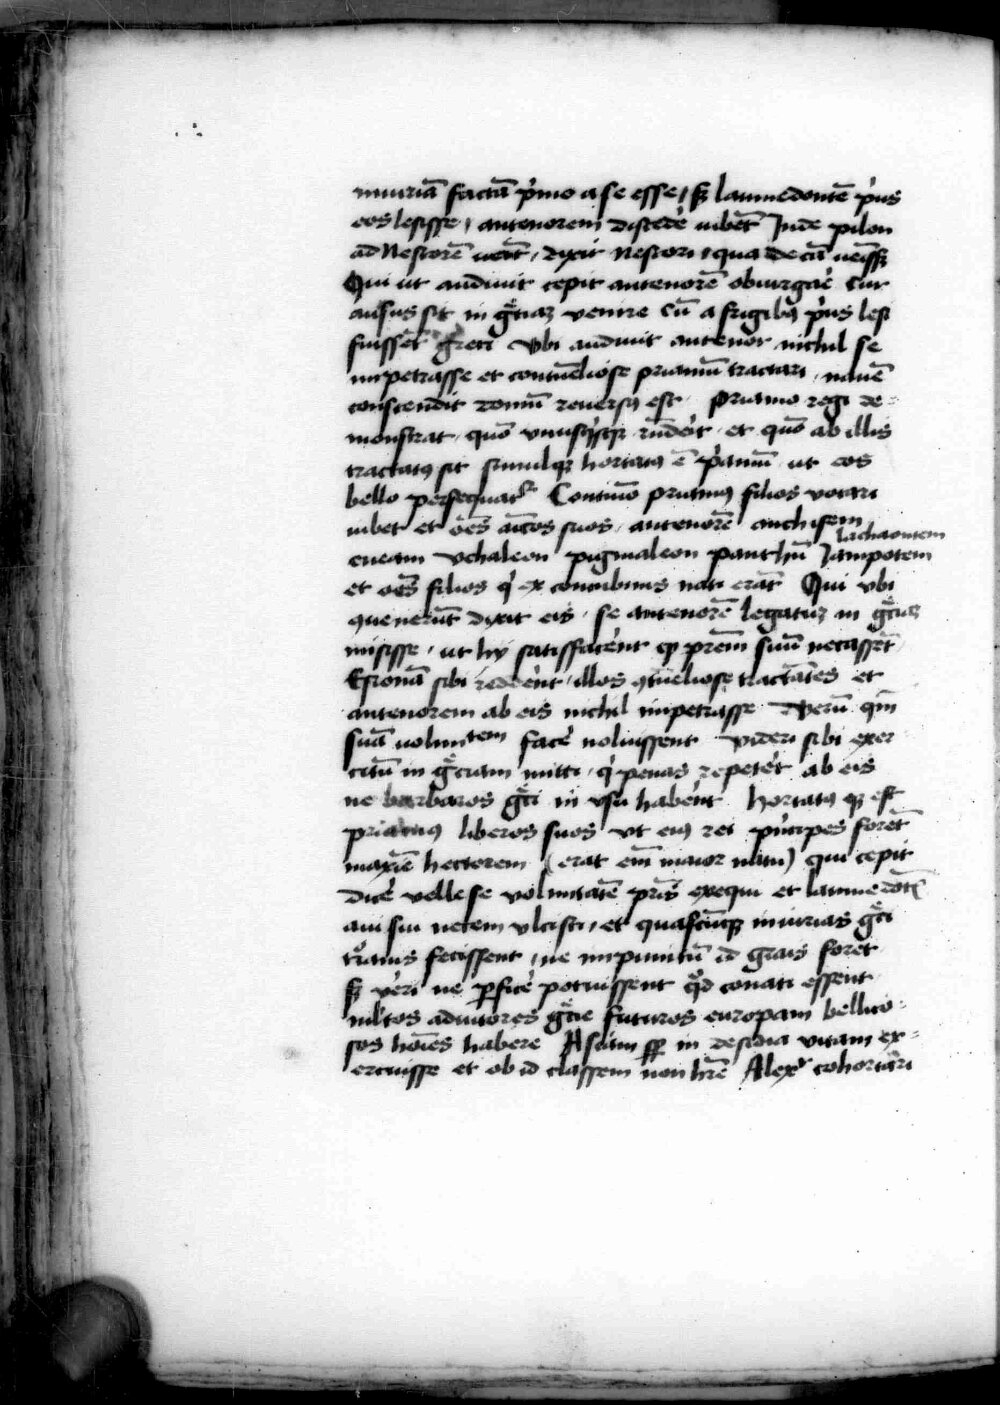 iniuriā factā p̄mo a se esse / sꝫ laumedontē p̄us
eos lesisse / antenorem discedē iubet Inde pilon
ad Nestorē uēit / dixit nestori / qua de cā uēissꝫ
Qui ut audiuit cepit antenorē obiurgaē Cur
ausus sit in gͣtiaꝫ venire Cū a frigibꝰ p̄us lesi
fuissēt greci Vbi audiuit antenor nichil se
impetrasse et contumēliose priamū tractari / nauē
conscendit domū reuersꝰ est Priamo regi de=
monstrat quō vnusqͥsqꝫ rn̄dēit et quō ab illis
tractatꝰ sit simulqꝫ hortatꝰ ē p̄amū ut eos
bello persequatᷣ Continuo priamꝰ filios vocari
iubet et oēs aīcos suos antenorē anchisem
eneam Vchaleon pigmaleon panthū Iampotem
lachaontem
et oēs filios qͥ ex concubinis nati erāt Qui vbi
quenerūt dixit eis se antenorē legatuꝫ in gͣtiaꝫ
misisse / ut hij satisfacēent qꝫ prēm suū necassēt
Esionā sibi reddēent / illos ꝯtuēliose tractātes et
antenorem ab eis nichil impetrasse Verū qm̄
suā voluntem facē noluissent Videri sibi exer
citū in gͣciam mitti qͥ penas repetēt ab eis
ne barbaros gͣci in vsu habēnt hortatꝰ qꝫ est
priamꝰ liberos suos vt eiꝰ rei pͥncipes forēt
maxīe hectorem (erat em̄ maior natu) qui cepit
dicē velle se volūntatē prīs exequi et laumedōtꝭ
aui sui necem vlcisci / et quascūqꝫ iniurias gͣci
troīanis fecissent / ne impunitū id grais foret
sꝫ vēri ne ꝑficē potuissent qͦd conati essent
mltos adiutores gͣcie futuros europam bellico=
sos hoīes habere Asiam sꝑ in desidia vitam ex=
ercuisse et ob id classem non hrē Alexͬ cohortari